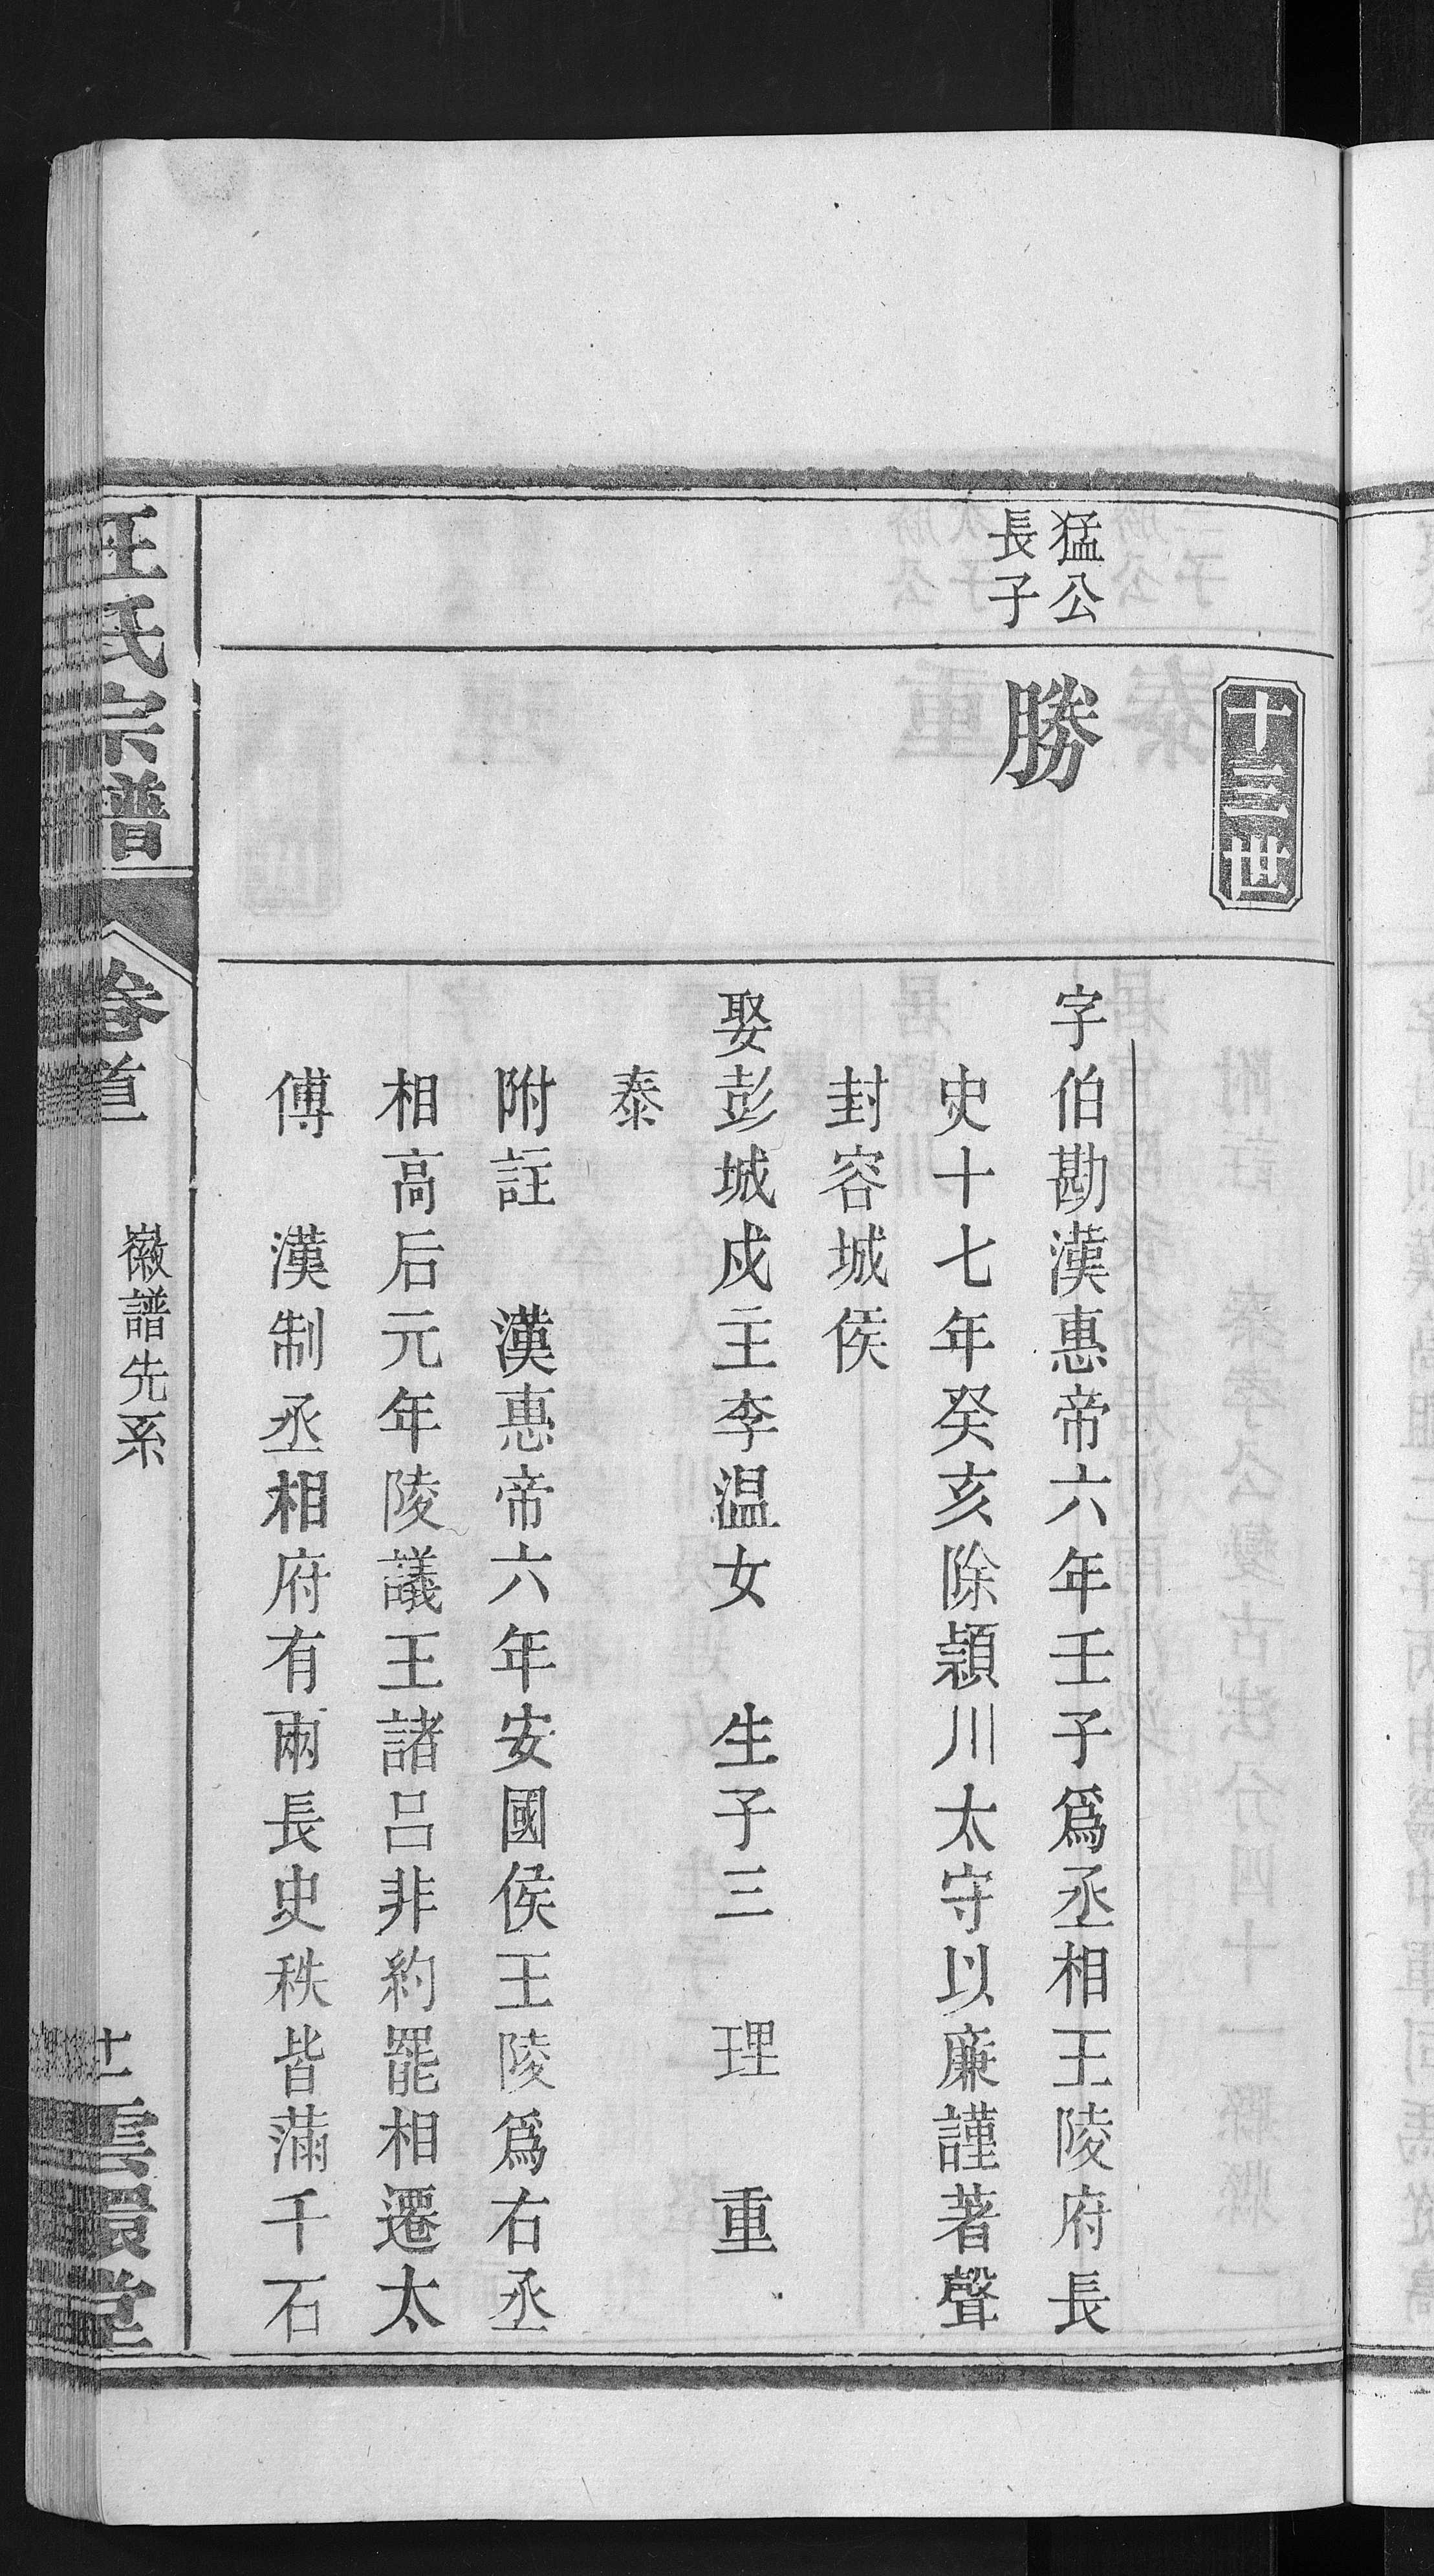 十三世
猛公
長子
勝
字伯勘漢惠帝六年壬子爲丞相王陵府長
史十七年癸亥除潁川太守以廉謹著聲
封容城侯
娶彭城戍主李温女　生子三　理　重
泰
附註　漢惠帝六年安國侯王陵爲右丞
相高后元年陵議王諸吕非約罷相遷太
傅　漢制丞相府有兩長史秩皆滿千石
汪氏宗譜
卷首
徽譜先系
十一
雲環堂